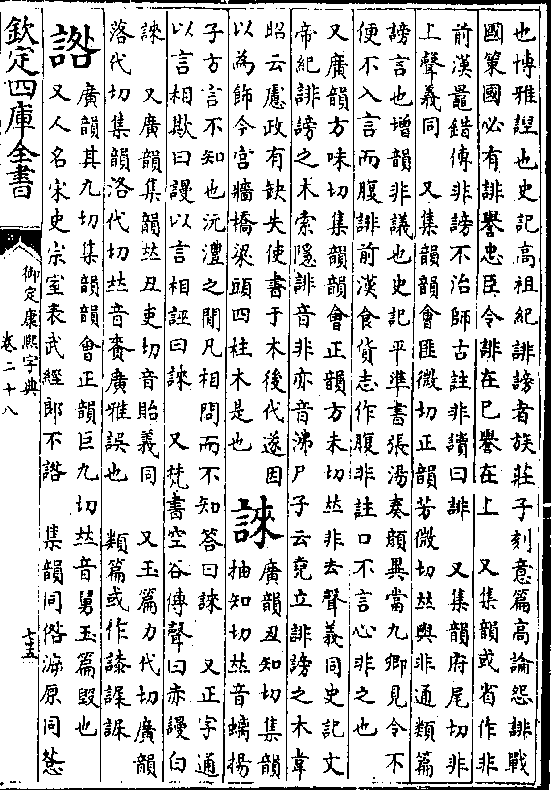 也博雅也史記高祖紀誹謗者族莊子刻意篇高論怨誹戰
國策國必有誹譽忠臣令誹在已譽在上 又集韻或省作非
前漢鼂錯傳非謗不治師古註非讀曰誹 又集韻府尾切非
上聲義同 又集韻韻會匪微切正韻芳微切𠀤與非通類篇
謗言也增韻非議也史記平準書張湯奏顏異當九卿見令不
便不入言而腹誹前漢食貨志作腹非註口不言心非之也
又廣韻方味切集韻韻會正韻方未切𠀤非去聲義同史記文
帝紀誹謗之木索隱誹音非亦音沸尸子云堯立誹謗之木韋
昭云慮政有缺失使書于木後代遂因
以為飾今宮牆橋梁頭四柱木是也
誺
廣韻丑知切集韻
抽知切𠀤音螭揚
子方言不知也沅澧之閒凡相問而不知答曰誺 又正字通
以言相欺曰謾以言相誣曰誺 又梵書空谷傳聲曰赤謾白
誺 又廣韻集韻𠀤丑吏切音眙義同 又玉篇力代切廣韻
落代切集韻洛代切𠀤音賚廣雅誤也 類篇或作
廣韻其九切集韻韻會正韻巨九切𠀤音舅玉篇毀也
又人名宋史宗室表武經郎不 集韻同倃海原同
欽定四庫全書
御定康熙字典
卷二十八
七五